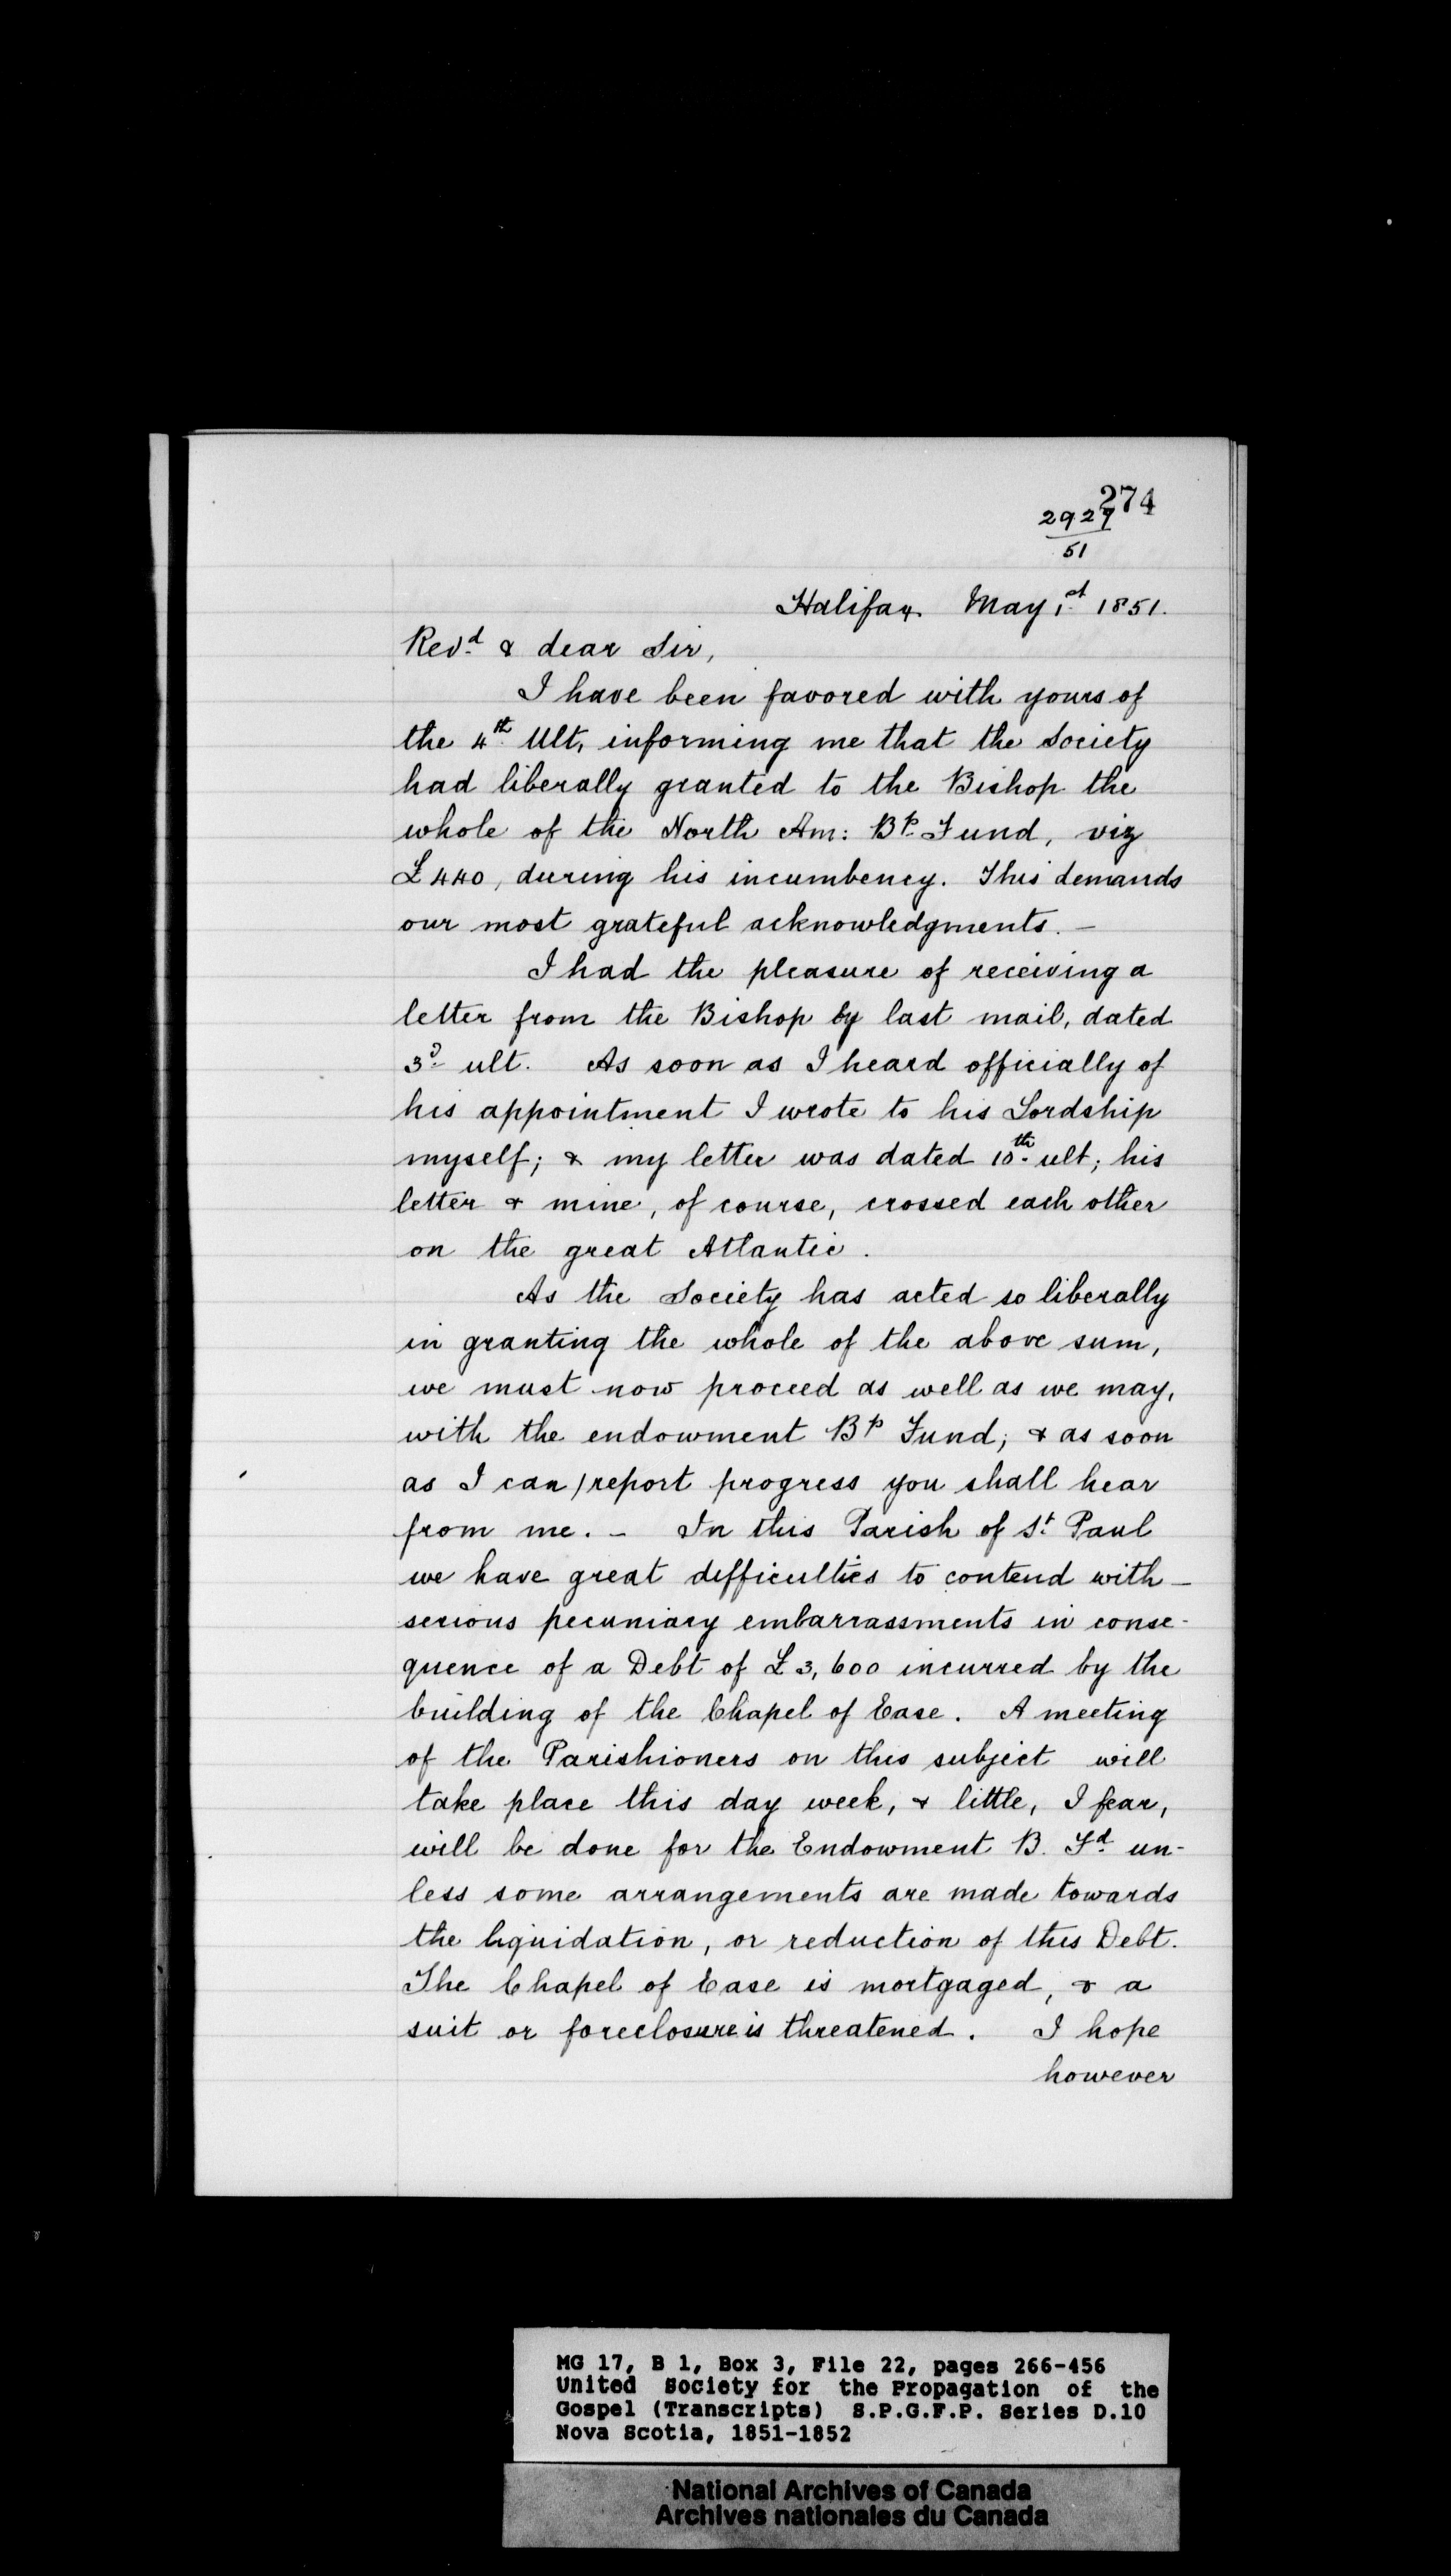 274
2927
51
Halifax. May 1st 1851.
Revd & dear Sir,
I have been favored with yours of
the 4th Ult, informing me that the Society
had liberally granted to the Bishop the
whole of the North Am: Bp Fund, viz
£440, during his incumbency. This demands
our most grateful acknowledgments. –
I had the pleasure of receiving a
letter from the Bishop by last mail, dated
3d ult. As soon as I heard officially of
his appointment I wrote to his Lordship
myself; & my letter was dated 10th ult; his
letter & mine, of course, crossed each other
on the great Atlantic.
As the Society has acted so liberally
in granting the whole of the above sum,
we must now proceed as well as we may,
with the endowment Bp Fund; & as soon
as I can report progress you shall hear
from me. – In this Parish of St Paul
we have great difficulties to contend with –
serious pecuniary embarrassments in conse-
quence of a Debt of £3,600 incurred by the
building of the Chapel of Ease. A meeting
of the Parishioners on this subject will
take place this day week, & little, I fear,
will be done for the Endowment B. Fd un-
less some arrangements are made towards
the liquidation, or reduction of this Debt.
The Chapel of Ease is mortgaged, & a
suit or foreclosure is threatened. I hope
however
MG 17, B 1, Box 3, File 22, pages 266-456
United Society for the Propagation of the
Gospel (Transcripts) S.P.G.F.P. Series D.10
Nova Scotia, 1851-1852
National Archives of Canada
Archives nationales du Canada